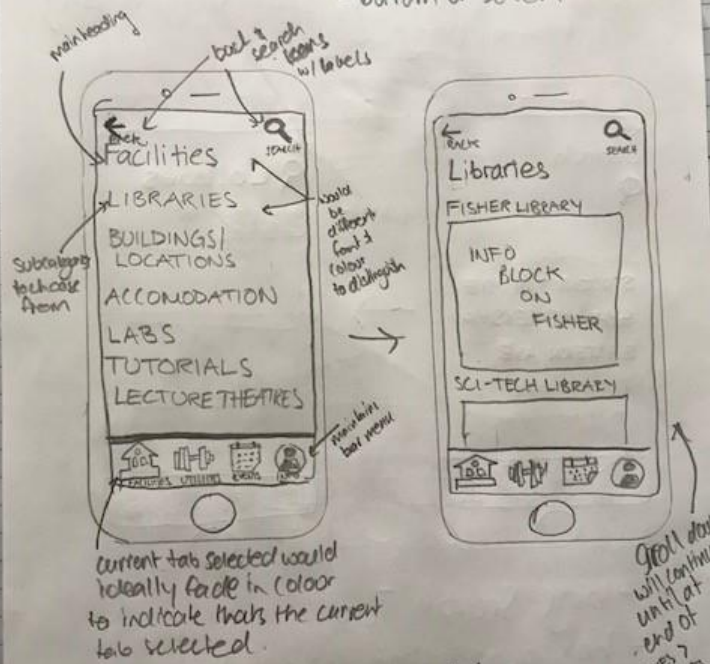 main heading
back &
search
icons
w/ labels
BACK
SEARCH
Facilities
LIBRARIES
BUILDINGS/
LOCATIONS
ACCOMODATION
LABS
TUTORIALS
LECTURE THEATRES
FACILITIES
UTILITIES
EVENTS
Subcategory
to choose
from
would
be
different
font &
colour
to distinguish
maintains
bar menu
current tab selected would
ideally fade in colour
to indicate thats the current
tab selected.
BACK
SEARCH
Libraries
FISHER LIBRARY
INFO
BLOCK
ON
FISHER
SCI-TECH LIBRARY
will
until at
end of